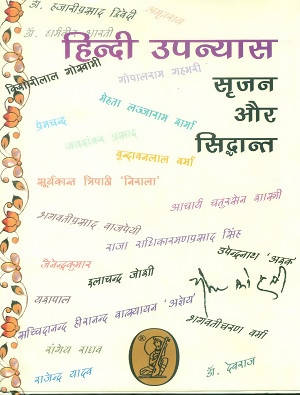 डॉ. हजारीप्रसाद द्विवेदी
अमृतराय
डॉ. धर्मवीर भारती
हिन्दी उपन्यास
किशोरीलाल गोस्वामी
गोपालराम गहमरी
सृजन
और
सिद्धान्त
मेहता लज्जाराम शर्मा
प्रेमचन्द
जयशंकर प्रसाद
वृन्दावनलाल वर्मा
सूर्यकान्त त्रिपाठी 'निराला'
आचार्य चतुरसेन शास्त्री
भगवतीप्रसाद वाजपेयी
राजा राधिकारमणप्रसाद सिंह
जैनेन्द्रकुमार
उपेन्द्रनाथ 'अश्क'
इलाचन्द्र जोशी
यशपाल
सच्चिदानन्द हीरानन्द वात्स्यायन 'अज्ञेय'
भगवतीचरण वर्मा
रांगेय राघव
राजेन्द्र यादव
डॉ. देवराज